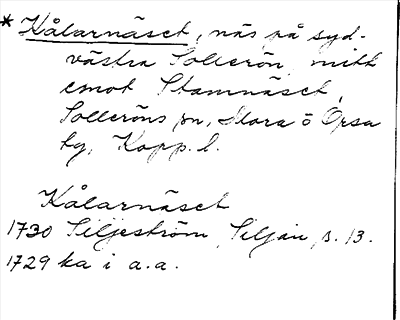 * Kålarnäset, näs på syd-
västra Sollerön, mitt
emot Stamnäset,
Solleröns sn, Mora o Orsa
tg, Kopp. l.
Kålarnäset
1730 Siljeström, Siljan, s. 13.
1729 ka i a.a.